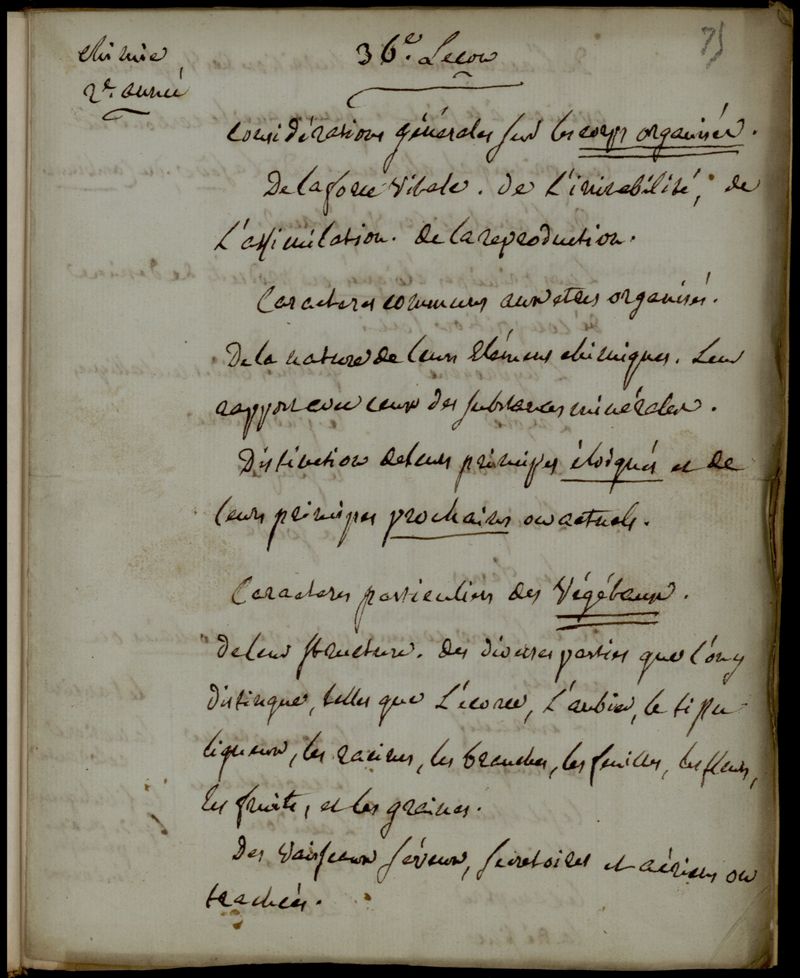 chimie
2e. année
36e. Lecon
75
Considérations générales sur les corps organisés.
De la force vitale. de L'irritabilité, de
L'assimilation. de la reproduction.
Caracteres communs aux etres organisés.
De la nature de leurs élémens chimiques. Leur
rapport avec ceux des substances minérales.
Distinction de leurs principes éloignés et de
leurs principes prochains ou actuels.
Caracteres particuliers des végétaux.
De leur structure. des diverses parties que l'on y
distingue, telles que L'écorce, L'aubier, le tissu
ligneux, les racines, les branches, les feuilles, les fleurs,
les fruits, et les graines.
Des vaisseaux séveux, secretoires et aériens ou
trachées.